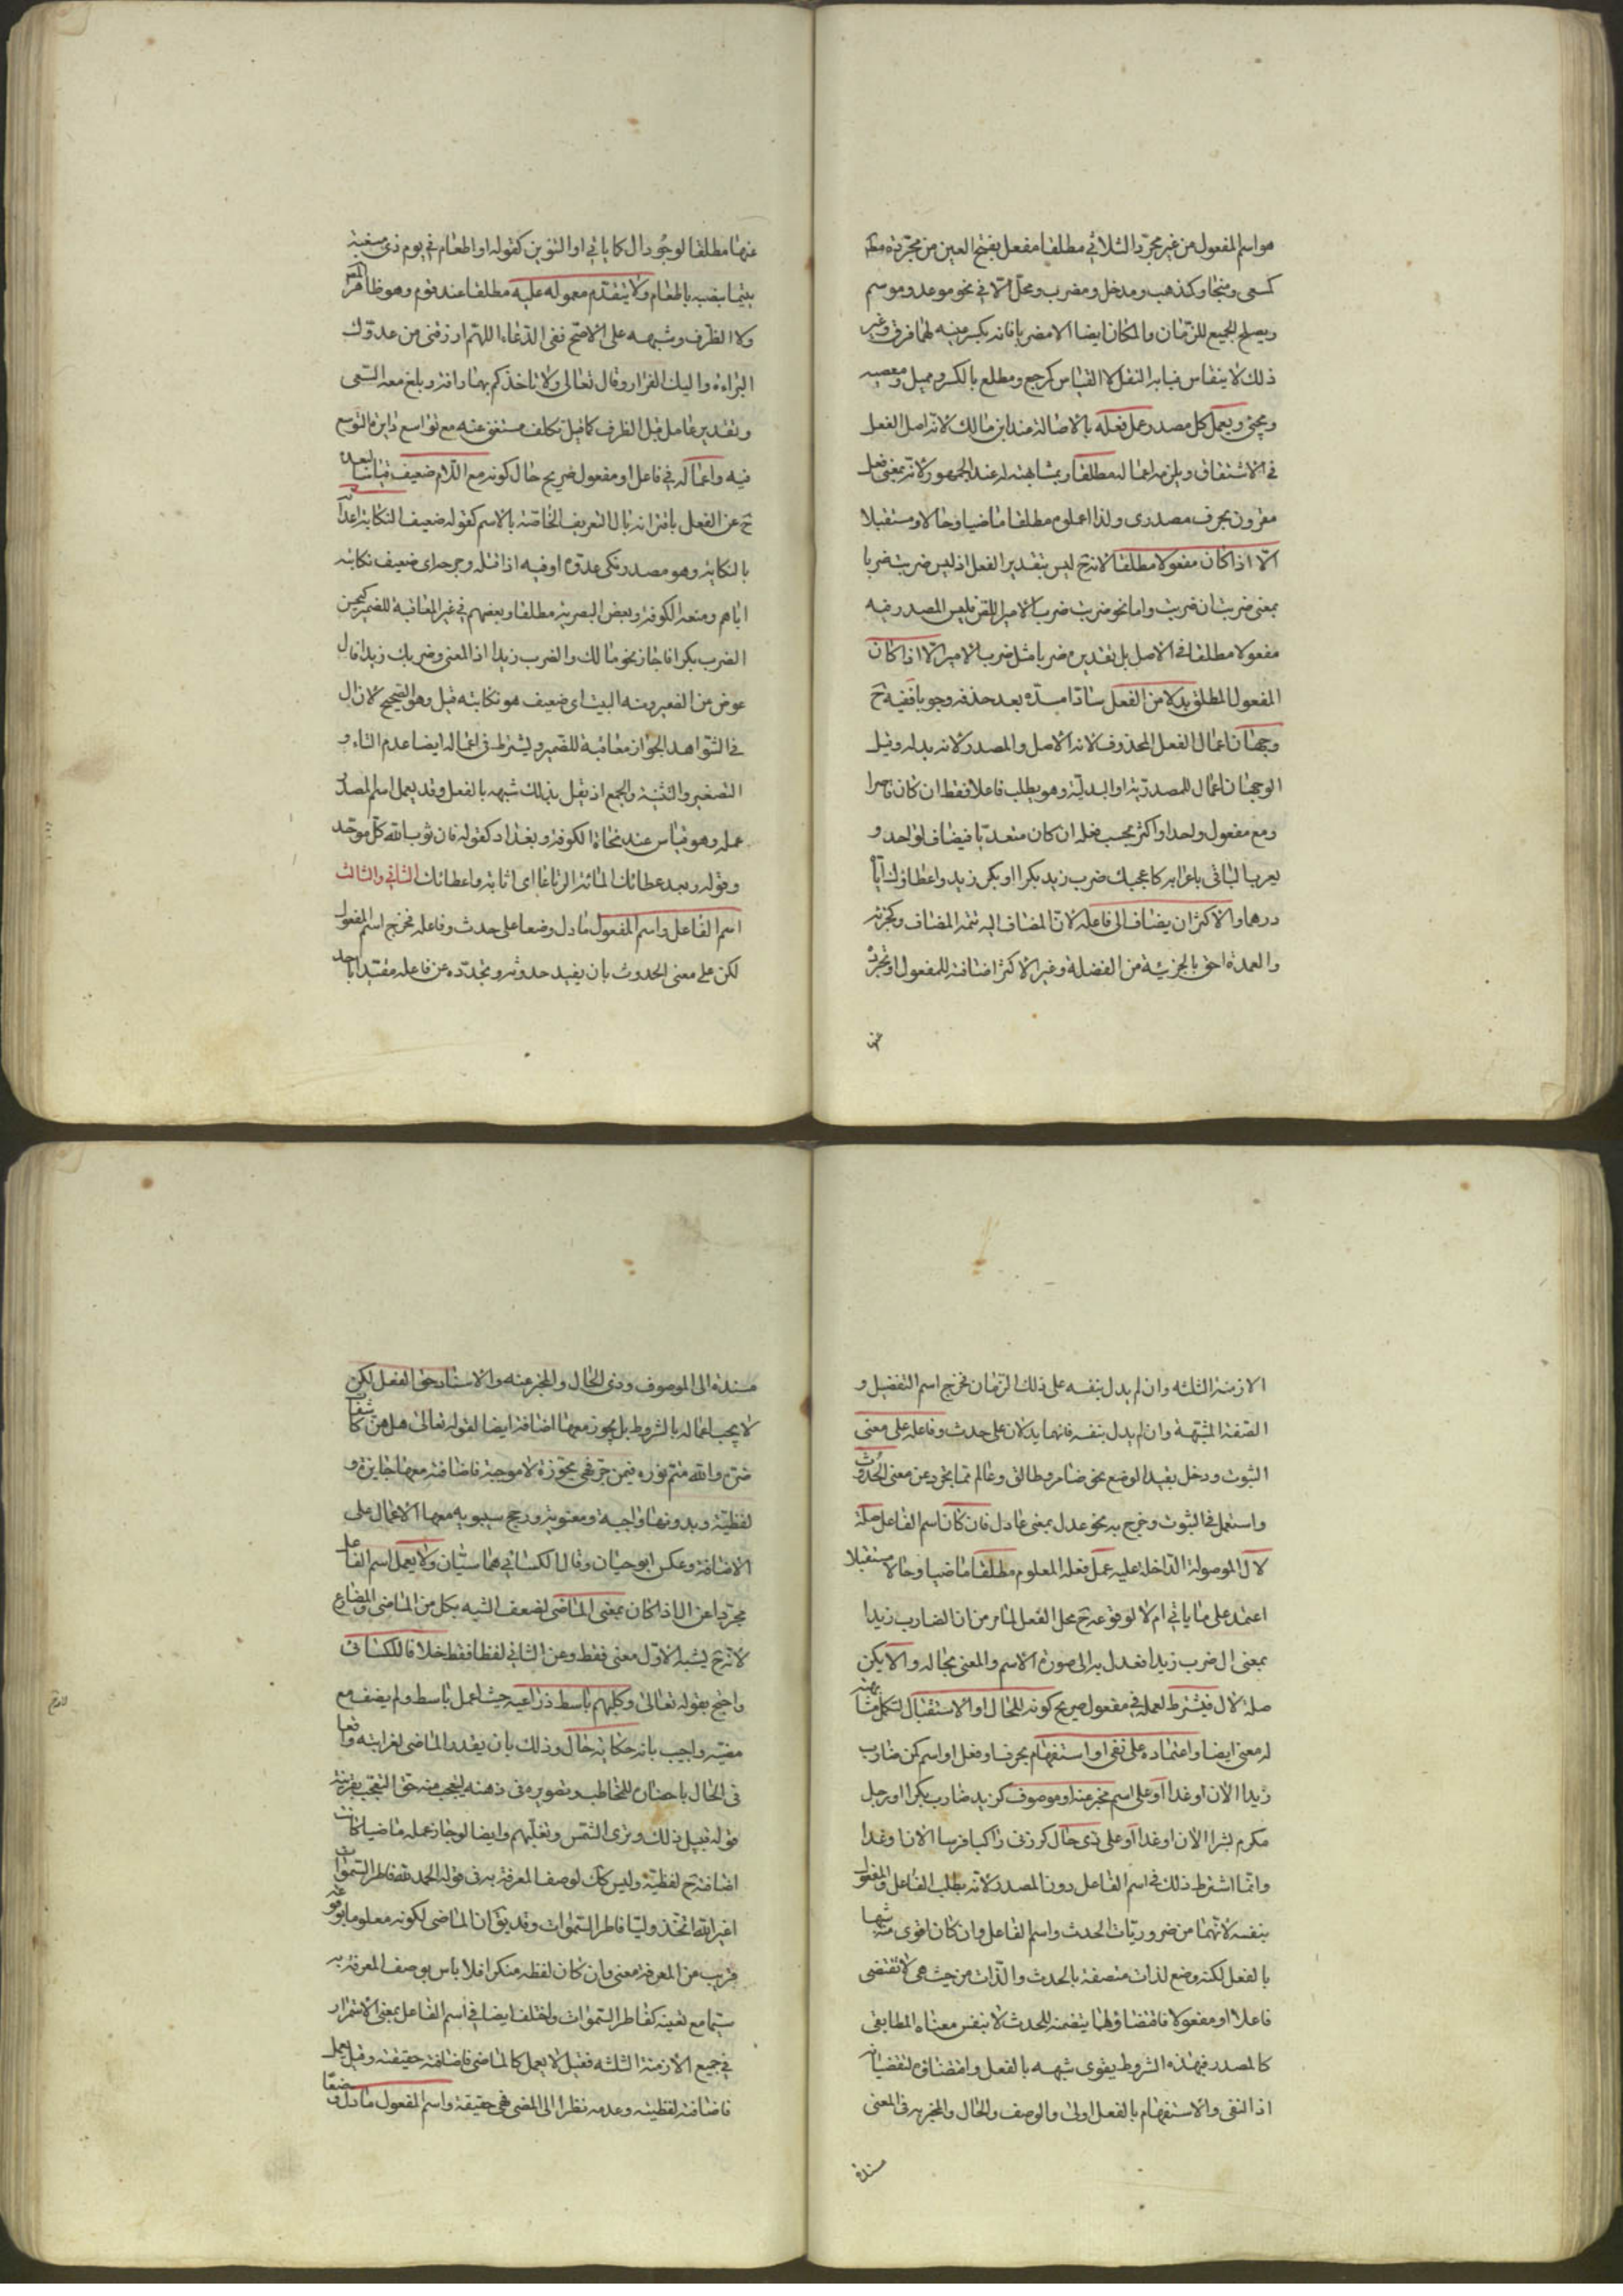 هو اسم المفعول من غير مجرد الثلاثي مطلقا مفعل بفتح العين من مجرده مطلقا
كمسعى ومنجا وكذهب ومدخل ومضرب ومحل الا في نحو موعد وموسم
ويصلح الجميع للزمان والمكان ايضا الا مضربا فانه يكسر منه لهما فرق وغير
ذلك لا ينقاس فبابه النقل لا القياس كمرجع ومطلع بالكسر ومميل ومعصيه
ومجئ ويعمل كل مصدر عمل فعله بالاصالة عند ابن مالك لانه اصل الفعل
في الاشتقاق ويلزمه اعماله مطلقا وبمشابهته له عند الجمهور لانه بمعنى فعل
مقرون بحرف مصدرى ولذا اعملوه مطلقا ماضيا وحالا ومستقبلا
الا اذا كان مفعولا مطلقا لانه ح ليس بتقدير الفعل اذ ليس ضربت ضربا
بمعنى ضربت ان ضربت واما نحو ضربت ضرب الامير اللص فليس المصدر فيه
مفعولا مطلقا في الاصل بل تقديره ضربا مثل ضرب الامير الا اذا كان
المفعول المطلق بدلا من الفعل سادا مسده بعد حذفه وجوبا ففيه ح
وجهان اعمال الفعل المحذوف لانه الاصل والمصدر لانه بدله وقيل
الوجهان اعمال للمصدرية او البدلية وهو يطلب فاعلا فقط ان كان قاصرا
ومع مفعول واحد او اكثر بحسب فعله ان كان متعديا فيضاف لواحد و
يعرب الباقي باعرابه كاعجبك ضرب زيد بكرا او بكر زيد واعطاؤك اياه
درهما والاكثر ان يضاف الى فاعله لان المضاف اليه تتمة المضاف وكجزئه
والعمدة احق بالجزئية من الفضلة وغير الاكثر اضافته للمفعول او تجرده
عنهما
عنها مطلقا لوجود ال كما ياتي او التنوين كقوله او اطعام في يوم ذى مسغبة
يتيما بنصبه باطعام ولا يتقدم معموله عليه مطلقا عند قوم وهو ظاهر المتن
ولا الظرف وشبهه على الاصح ففي الدعاء اللهم ارزقني من عدوك
البراءة واليك الفرار وقال تعالى ولا تاخذكم بهما رافة وبلغ معه السعى
وتقدير عامل قبل الظرف كما قيل تكلف مستغنى عنه مع تواسع دايرة التوسع
فيه واعماله في فاعل او مفعول صريح حال كونه مع اللام ضعيف قياسا لبعده
ح عن الفعل باقترانه بال التعريف الخاصة بالاسم كقوله ضعيف النكاية اعداءه
بالنكاية وهو مصدر نكى عدوه او فيه اذا قتله وجرحه اى ضعيف نكاية
اياهم ومنعه الكوفة وبعض البصرية مطلقا وبعضهم في غير المعاقبة للضمير كيحسن
الضرب بكرا فاجاز نحو مالك والضرب زيدا اذ المعنى وضربك زيدا فال
عوض من الضمير ومنه البيت اى ضعيف هو نكايته قيل وهو الصحيح لان ال
في الشواهد الجواز معاقبة للضمير ويشترط في اعماله ايضا عدم التاء و
التصغير والتثنية والجمع اذ يقل بذلك شبهه بالفعل وقد يعمل اسم المصدر
عمله وهو قياس عند نحاة الكوفة وبغداد كقوله فان ثوب الله كل موحد
وقوله وبعد عطائك المائة الرتاعا اى اثابة واعطائك الثاني والثالث
اسم الفاعل واسم المفعول ما دل وضعا على حدث وفاعله فخرج اسم المفعول
لكن على معنى الحدوث بان يفيد حدوثه وتجدده عن فاعله مقيدا باحد
الازمنة الثلثه وان لم يدل بنفسه على ذلك الزمان فخرج اسم التفضيل و
الصفة المشبهة وان لم يدل بنفسه فانهما يدلان على حدث وفاعله على معنى
الثبوت ودخل بقيد الوضع نحو ضامر وطالق وعالم مما تجرد عن معنى الحدوث
واستعمل في الثبوت وخرج به نحو عدل بمعنى عادل فان كان اسم الفاعل صلة
لال الموصولة الداخلة عليه عمل فعله المعلوم مطلقا ماضيا وحالا ومستقبلا
اعتمد على ما ياتي ام لا لوقوعه ح محل الفعل لما مر من ان الضارب زيدا
بمعنى ال ضرب زيدا فعدل به الى صورة الاسم والمعنى بحاله والا يكن
صلة لال فيشترط لعمله في مفعول صريح كونه للحال او الاستقبال لتكمل مشابهته
له معنى ايضا واعتماده على نفي او استفهام بحرف او فعل او اسم كمن ضارب
زيدا الان او غدا او على اسم مخبر عنه او موصوف كزيد ضارب بكرا او رجل
مكرم بشرا الان او غدا او على ذى حال كزرني راكبا فرسا الان او غدا
وانما اشترط ذلك في اسم الفاعل دون المصدر لانه يطلب الفاعل والمفعول
بنفسه لانهما من ضروريات الحدث واسم الفاعل وان كان اقوى منه شبها
بالفعل لكنه وضع لذات متصفة بالحدث والذات من حيث هى لا تقتضى
فاعلا او مفعولا فاقتضاؤهما يتضمنه للحدث لا بنفس معناه المطابقى
كالمصدر فبهذه الشروط يقوى شبهه بالفعل واقتضاؤه لمقتضياته
اذ النفى والاستفهام بالفعل اولى والوصف والحال والمخبر به في المعنى
مسندة
مسندة الى الموصوف وذى الحال والمخبر عنه والاسناد حق الفعل لكن
لا يجب اعماله بالشروط بل يجوز معها اضافته ايضا لقوله تعالى هل هن كاشفات
ضره والله متم نوره فيمن جر فهى مجوزة لا موجبة فاضافته معها جايزة و
لفظية وبدونها واجبة ومعنوية ورجح سيبويه معها الاعمال على
الاضافة وعكس ابو حيان وقال الكسائي هما سيان ولا يعمل اسم الفاعل
مجردا عن ال اذا كان بمعنى الماضى لضعف الشبه بكل من الماضى والمضارع
لانه ح يشبه الاول معنى فقط وعن الثاني لفظا فقط خلافا للكسائي
واحتج بقوله تعالى وكلبهم باسط ذراعيه حيث اعمل باسط ولم يضف مع
مضيه واجيب بانه حكاية حال وذلك بان يقدر الماضى لغرابته واقعا
في الحال باحضاره للمخاطب وتصويره في ذهنه ليتعجب منه حق التعجب بقرينة
قوله قبيل ذلك وترى الشمس ونقلبهم وايضا لو جاز عمله ماضيا كانت
اضافته ح لفظية وليس كك لوصف المعرفة به في قوله الحمد لله فاطر السموات
اغير الله اتخذ وليا فاطر السموات وقد يق ان الماضى لكونه معلوما بوقوعه
قريب من المعرفة معنى وان كان لفظه منكرا فلا باس بوصف المعرفة به
سيما مع تعينه كفاطر السموات واختلف ايضا في اسم الفاعل بمعنى الاستمرار
في جميع الازمنة الثلثه فقيل لا يعمل كالماضى فاضافته حقيقته وقيل يعمل
فاضافته لفظيته وعدمه نظرا الى المضى فهى حقيقة واسم المفعول ما دل وضعا